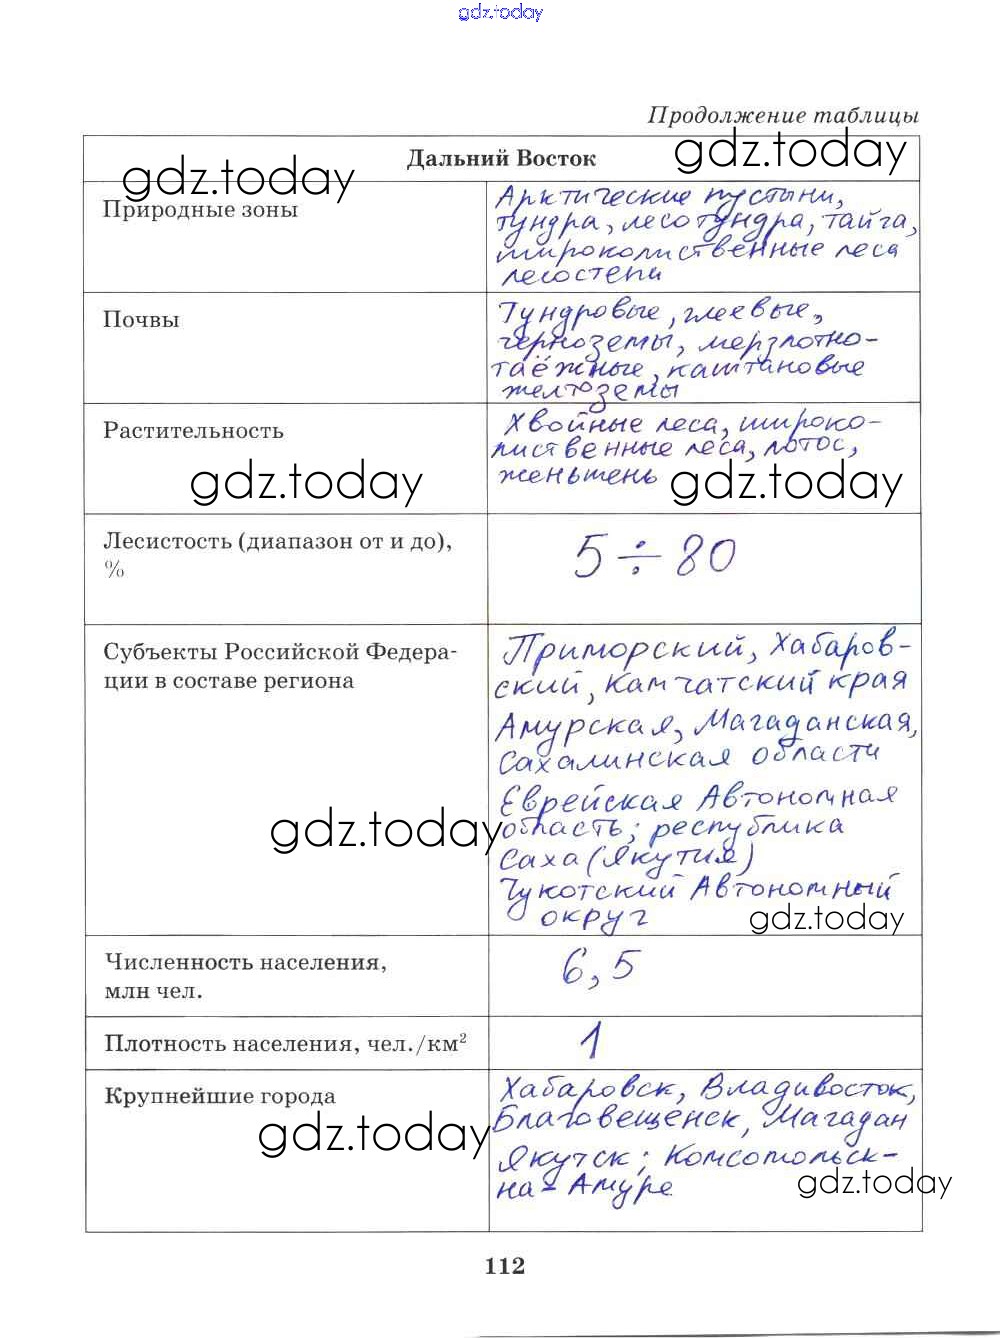 gdz.today
Продолжение таблицы
Дальний Восток
gdz.today
gdz.today
Природные зоны
Арктические пустыни,
тундра, лесотундра, тайга,
широколиственные леса
лесостепи
Почвы
Тундровые, глеевые,
черноземы, мерзлотно-
таёжные, каштановые
желтоземы
Растительность
Хвойные леса, широко-
лиственные леса, лотос,
женьшень
gdz.today
gdz.today
Лесистость (диапазон от и до),
%
5 ÷ 80
Субъекты Российской Федера-
ции в составе региона
Приморский, Хабаров-
ский, Камчатский края
Амурская, Магаданская,
Сахалинская области
Еврейская Автономная
область; республика
Саха (Якутия)
Чукотский Автономный
округ
gdz.today
gdz.today
Численность населения,
млн чел.
6,5
Плотность населения, чел./км²
1
Крупнейшие города
Хабаровск, Владивосток,
Благовещенск, Магадан
Якутск; Комсомольск-
на-Амуре
gdz.today
gdz.today
112